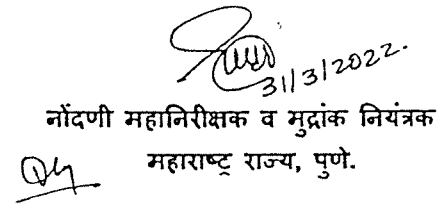 31/3/2022.
नोंदणी महानिरीक्षक व मुद्रांक नियंत्रक
महाराष्ट्र राज्य, पुणे.